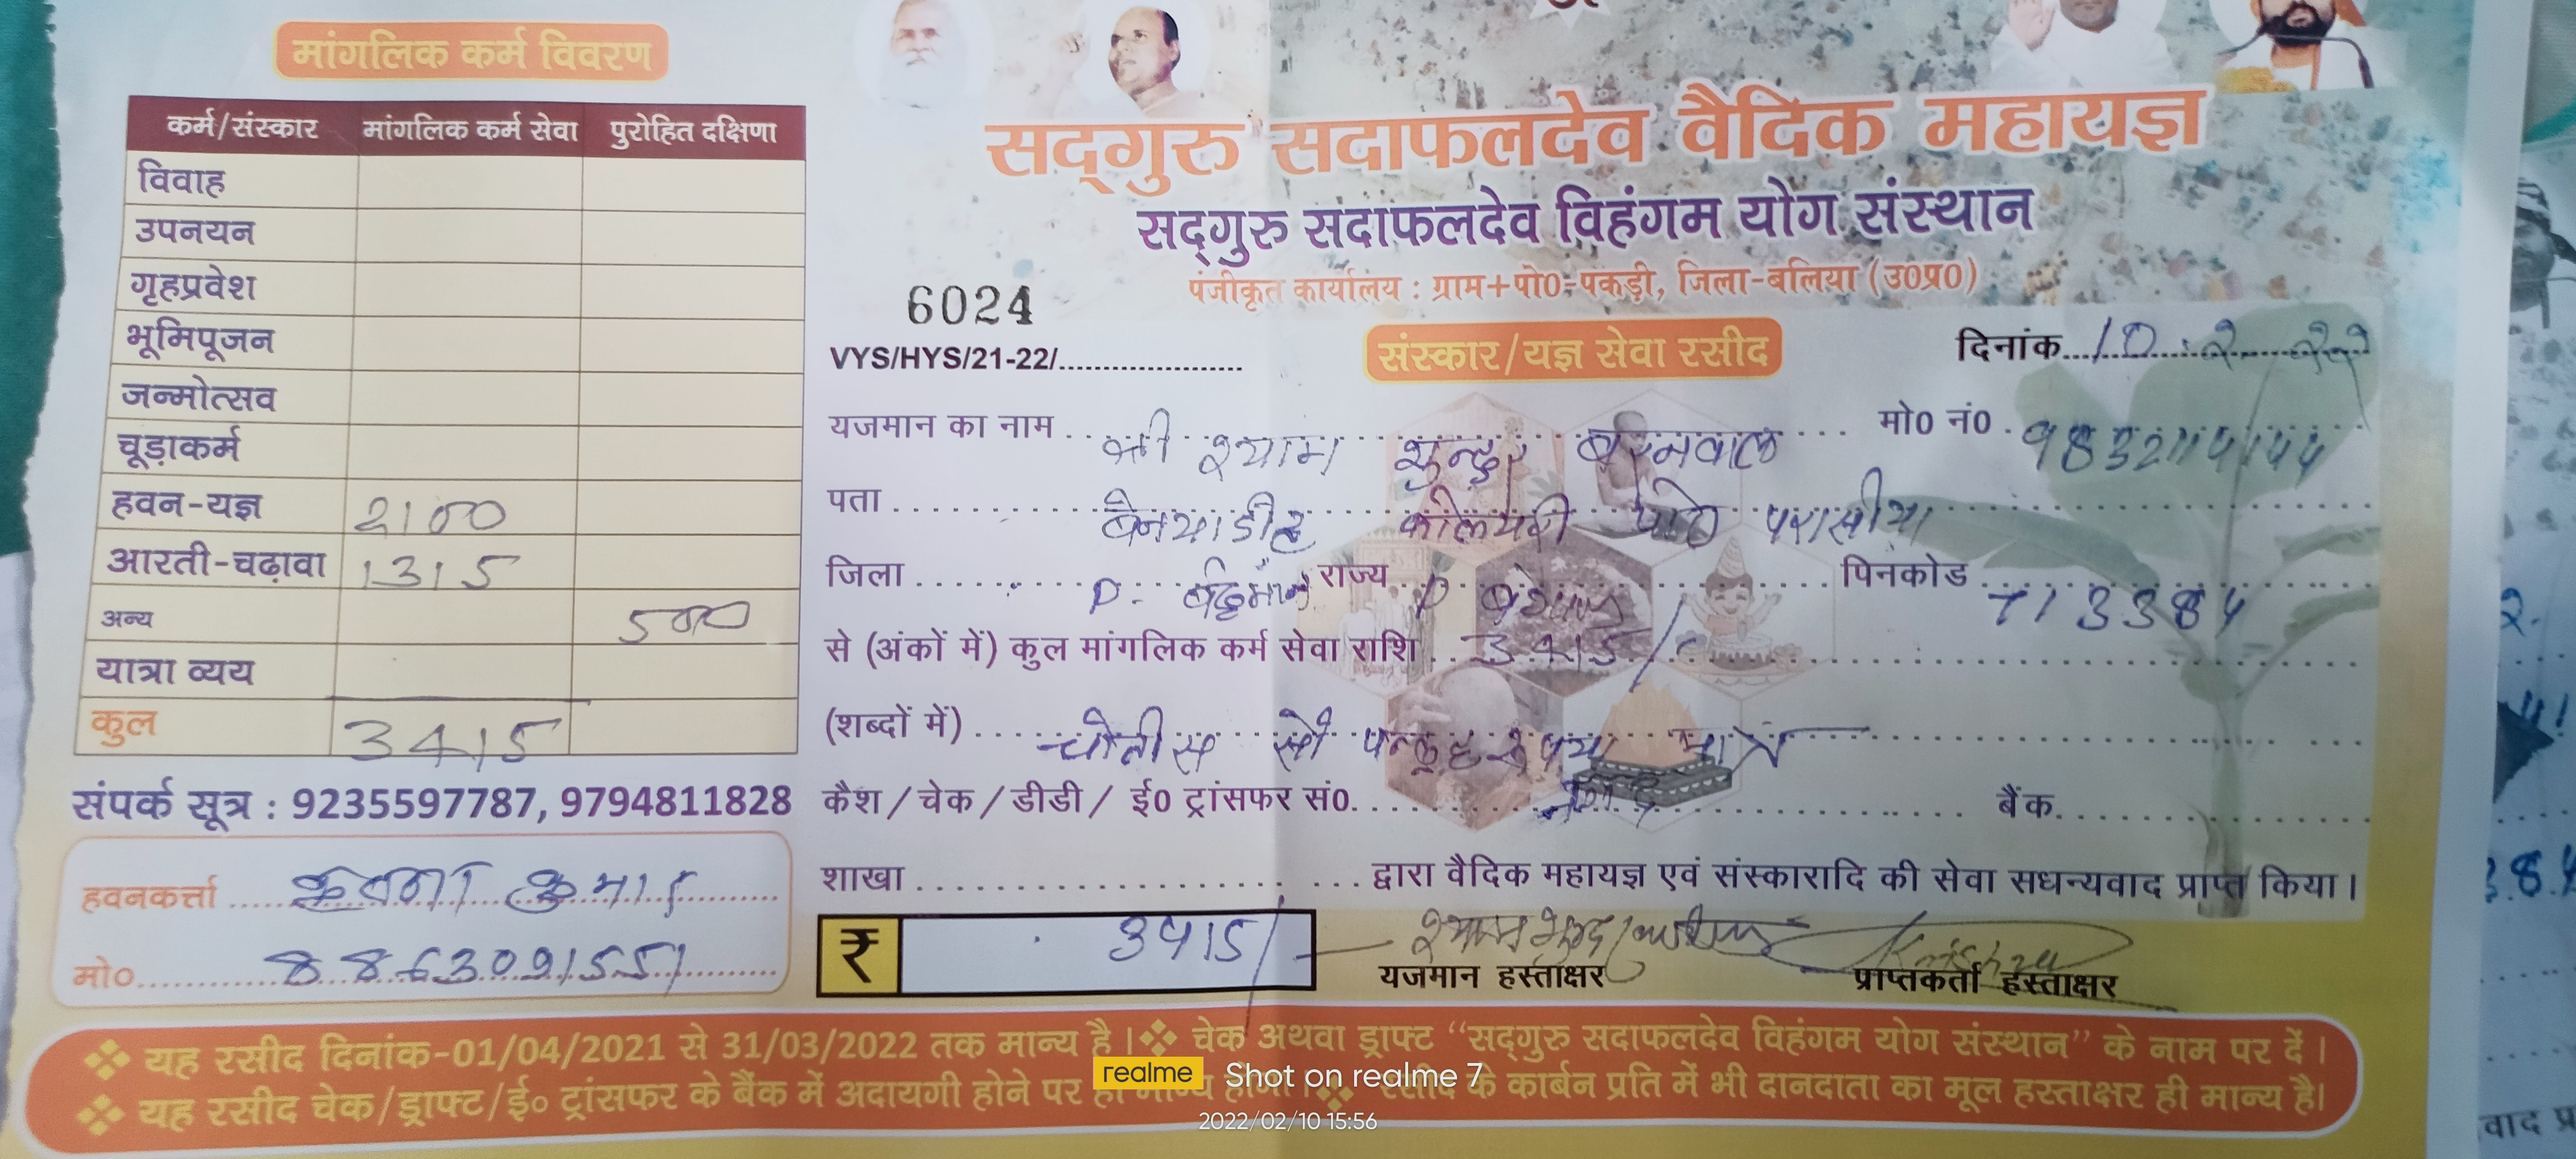 मांगलिक कर्म विवरण
कर्म/संस्कार मांगलिक कर्म सेवा पुरोहित दक्षिणा
विवाह
उपनयन
गृहप्रवेश
भूमिपूजन
जन्मोत्सव
चूड़ाकर्म
हवन-यज्ञ 2100
आरती-चढ़ावा 1315
अन्य 500
यात्रा व्यय
कुल 3415
संपर्क सूत्र : 9235597787, 9794811828
हवनकर्त्ता कुमार
मो० 8863091551
सद्गुरु सदाफलदेव वैदिक महायज्ञ
सद्गुरु सदाफलदेव विहंगम योग संस्थान
पंजीकृत कार्यालय : ग्राम+पो0-पकड़ी, जिला-बलिया (उ0प्र0)
6024
VYS/HYS/21-22/
संस्कार/यज्ञ सेवा रसीद
दिनांक 10.२.२२
यजमान का नाम श्री श्याम सुन्दर बरनवाल मो0 नं0
पता कोलयरी परासीया
जिला P. बर्द्धमान राज्य P बंगाल पिनकोड 713384
से (अंकों में) कुल मांगलिक कर्म सेवा राशि 3415/
(शब्दों में) चौतीस सौ पन्द्रह रुपया मात्र
कैश / चेक / डीडी / ई0 ट्रांसफर सं0. नगद बैंक
शाखा द्वारा वैदिक महायज्ञ एवं संस्कारादि की सेवा सधन्यवाद प्राप्त किया।
₹ 3415/-
यजमान हस्ताक्षर प्राप्तकर्ता हस्ताक्षर
Krishna
❖ यह रसीद दिनांक-01/04/2021 से 31/03/2022 तक मान्य है। ❖ चेक अथवा ड्राफ्ट "सद्गुरु सदाफलदेव विहंगम योग संस्थान" के नाम पर दें।
❖ यह रसीद चेक/ड्राफ्ट/ई० ट्रांसफर के बैंक में अदायगी होने पर ही मान्य होगी। ❖ रसीद के कार्बन प्रति में भी दानदाता का मूल हस्ताक्षर ही मान्य है।
realme Shot on realme 7
2022/02/10 15:56